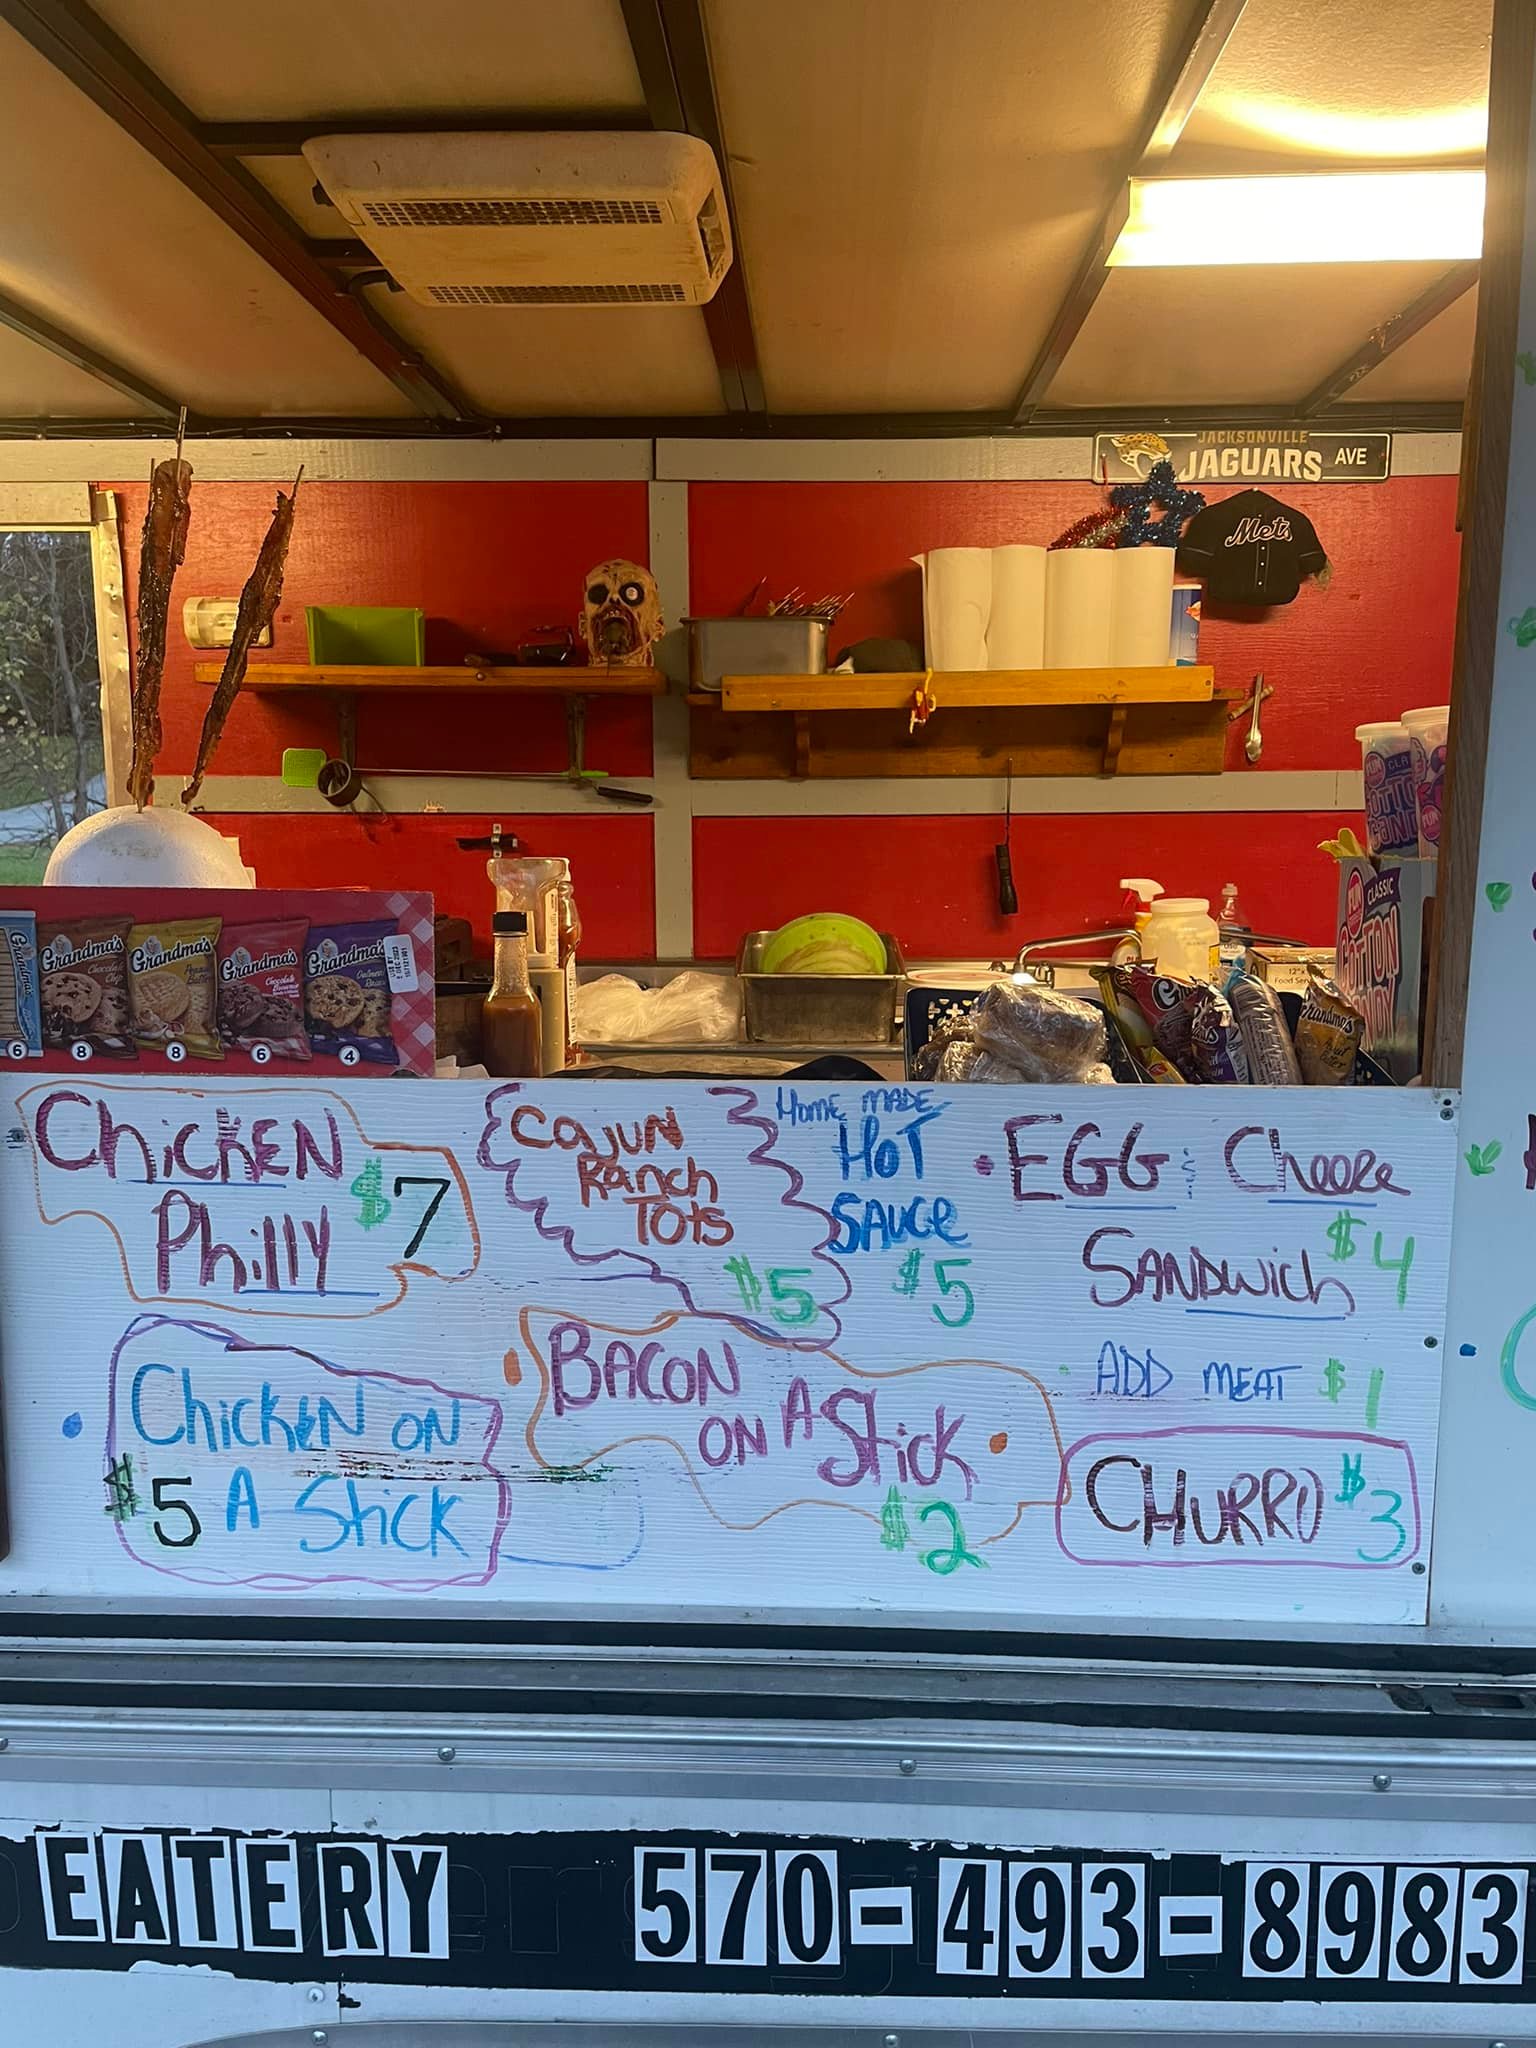 JACKSONVILLE
JAGUARS AVE
Mets
FUN
CLASSIC
COTTON
CANDY
Grandma's
Grandma's Chocolate Chip
Grandma's
Grandma's
Grandma's
6 8 8 6 4
Grandma's
Chicken
Philly
$7
Cajun
Ranch
Tots
$5
Home made
Hot
Sauce
$5
Egg & Cheese
Sandwich $4
Add meat $1
Chicken on
$5 A Stick
Bacon
on A Stick
$2
Churro $3
EATERY 570-493-8983